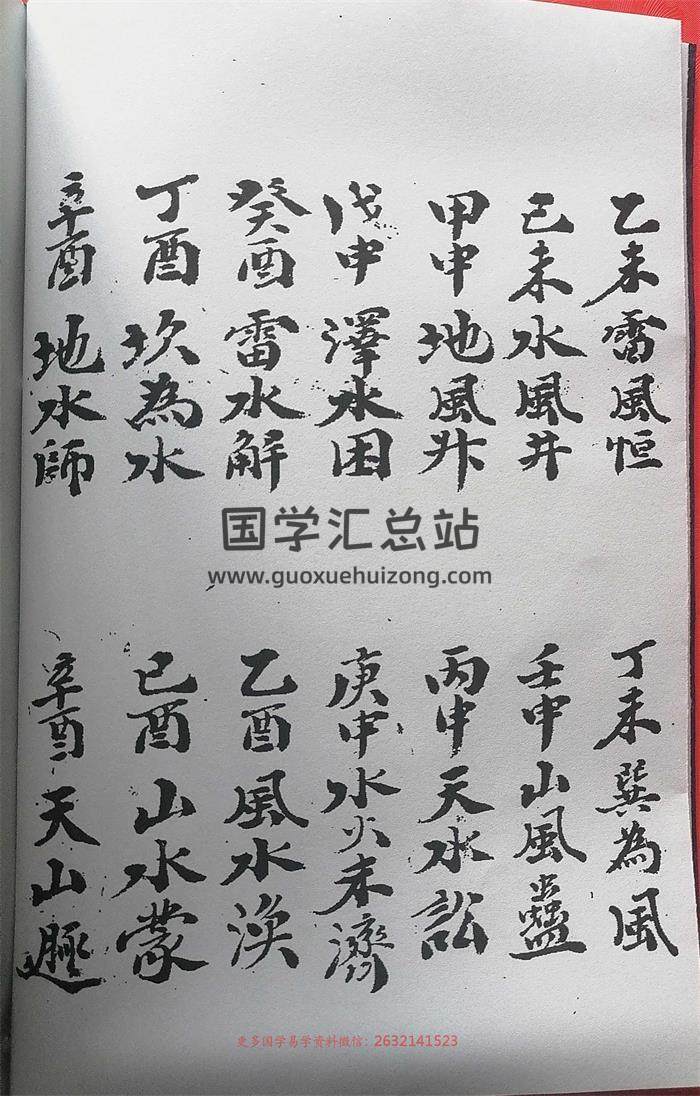 乙未雷風恒
丁未巽為風
己未水風井
壬申山風蠱
甲申地風升
丙申天水訟
戊申澤水困
庚申水火未濟
癸酉雷水解
乙酉風水渙
丁酉坎為水
己酉山水蒙
辛酉地水師
辛酉天山遯
国学汇总站
www.guoxuehuizong.com
更多国学易学资料微信：2632141523